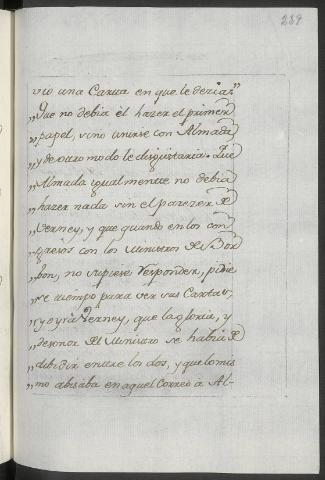 289
vio una Carta en que le decia:"
„ Que no debia èl hazer el primer
„ papel, sino unirse con Almada,
„ y de otro modo le disgustaria. Que
„ Almada igualmente no debia
„ hazer nada sin el parezer de
„ Verney, y que quando en los con
„ gresos con los Ministros de Bor
„ bon, no supiese responder, pidie
„ se tiempo para ver sus Cartas,
„ y oyrà Verney, que la gloria, y
„ desonor del Ministro se habia de
„ dibidir entre los dos, y que lo mis
„ mo abisaba en aquel Correo à Al-